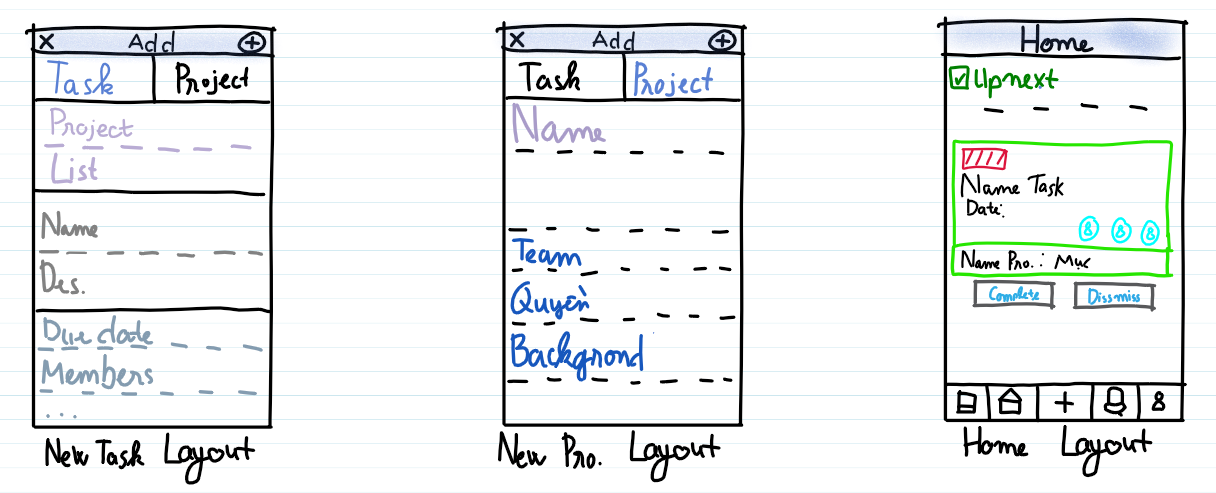 X Add +
Task Project
Project
List
Name
Des.
Due date
Members
...
New Task Layout
X Add +
Task Project
Name
Team
Quyền
Backgrond
New Pro. Layout
Home
Upnext
Name Task
Date:
8 8 8
Name Pro.: Mục
Complete Dissmiss
+ 8
Home Layout